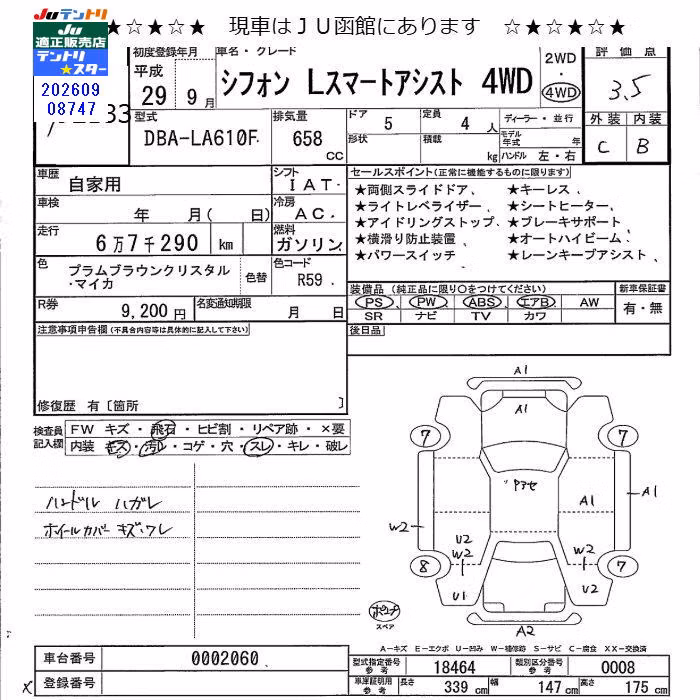 Juテントリ
Ju
適正販売店
テントリ
★スター
202609
08747
★☆★☆★ 現車はJU函館にあります ☆★☆★☆★
初度登録年月
平成
29年9月
車名・グレード
シフォン Lスマートアシスト 4WD
2WD
・
4WD
評価点
3.5
外装 内装
C B
型式
DBA-LA610F
排気量
658
cc
ドア
5
定員
4人
形状
積載
kg
ディーラー・並行
モデル年式 年
ハンドル 左・右
車歴
自家用
シフト
IAT
車検
年 月( 日)
冷房
AC
走行
6万7千290 km
燃料
ガソリン
色
プラムブラウンクリスタル
・マイカ
色替
色コード
R59
R券
9,200円
名変通知期限
月 日
セールスポイント(正常に機能するものに限ります)
★両側スライドドア、 ★キーレス、
★ライトレベライザー、 ★シートヒーター、
★アイドリングストップ、 ★ブレーキサポート、
★横滑り防止装置、 ★オートハイビーム、
★パワースイッチ、 ★レーンキープアシスト、
装備品(純正品に限り○をつけてください)
PS PW ABS エアB AW
SR ナビ TV カワ
新車保証書
有・無
後日品
注意事項申告欄(不具合内容等は具体的に記入して下さい)
修復歴 有[箇所 ]
検査員
記入欄
FW キズ・飛石・ヒビ割・リペア跡・×要
内装 キズ・汚れ・コゲ・穴・スレ・キレ・破レ
ハンドル ハガレ
ホイールカバー キズ・ワレ
A1
A1
7
7
アセ
A1
A1
W2
U2
W2
W2
8
7
U1
U2
A2
スペア
A-キズ E-エクボ U-凹み W-補修跡 S-サビ C-腐食 XX-交換済
車台番号
0002060
登録番号
型式指定番号
参考
18464
類別区分番号
参考
0008
車庫証明用
参考
長さ
339cm
幅
147cm
高さ
175cm